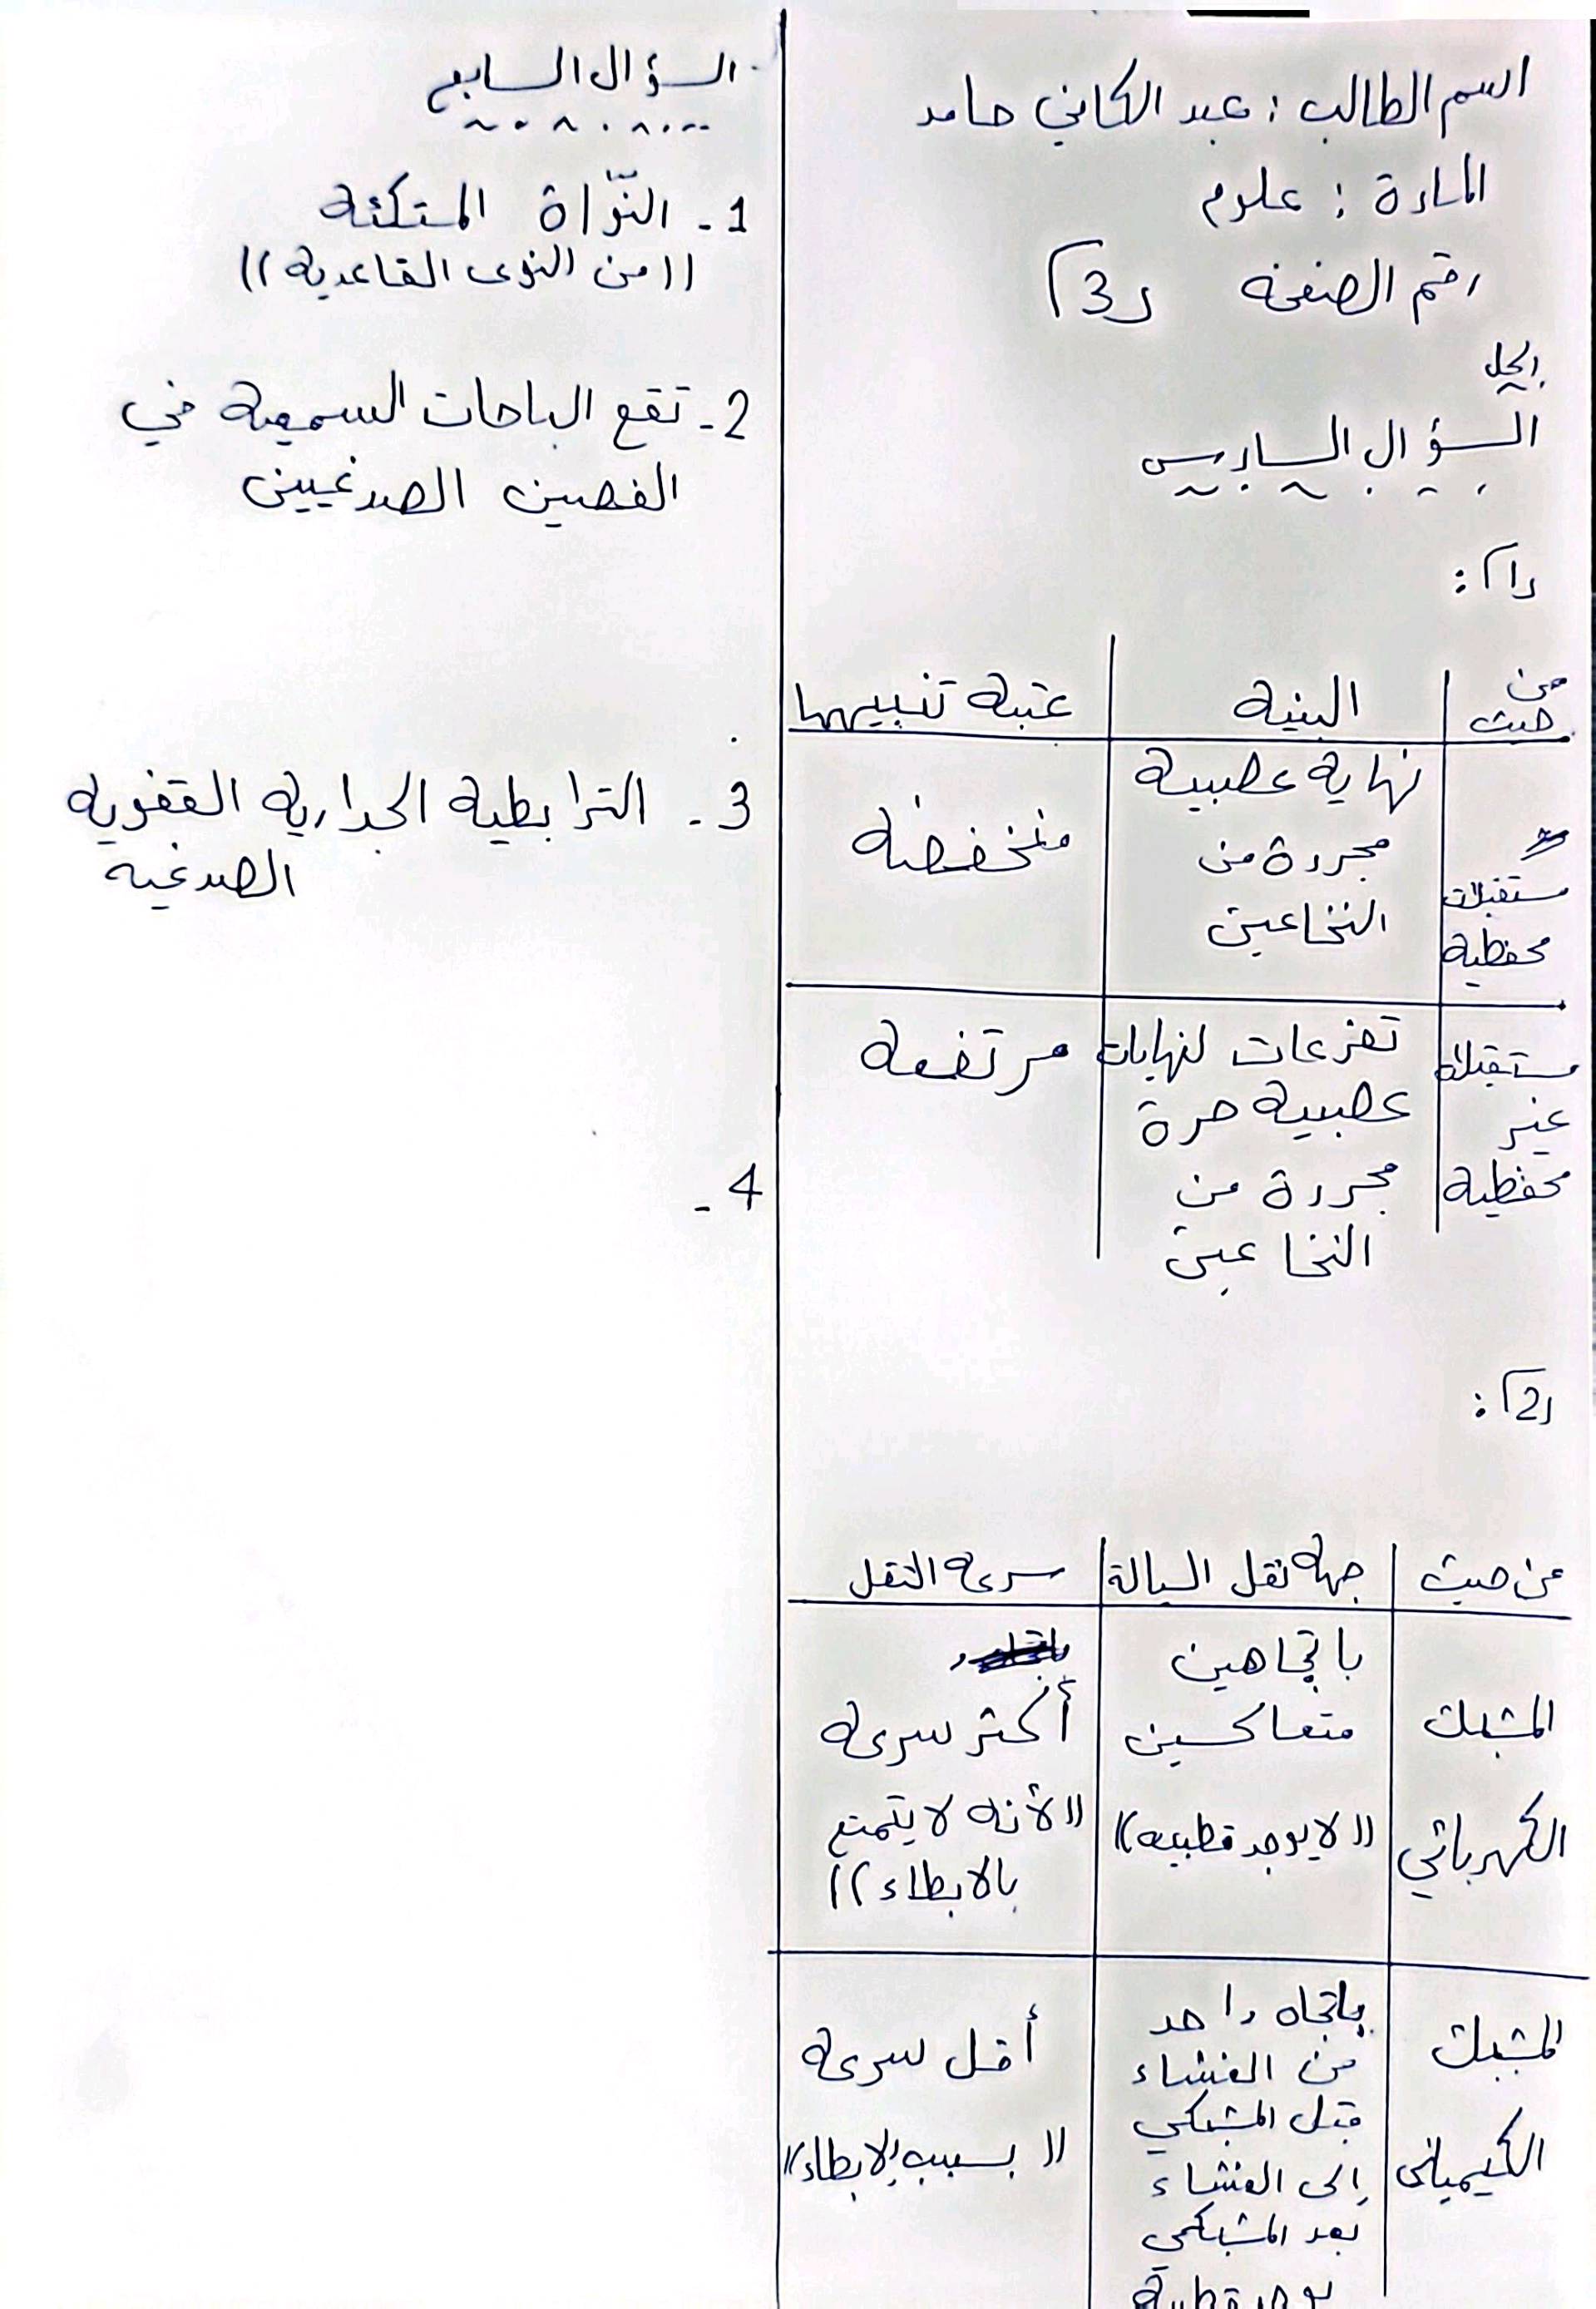 اسم الطالب : عبد الكافي حامد
المادة : علوم
رقم الصفحة (3)
الحل
السؤال السادس
(1) :
من حيث | البنية | عتبة تنبيهها
مستقبلات محفظية | نهاية عصبية مجردة من النخاعين | منخفضة
مستقبلات غير محفظية | تفرعات لنهايات عصبية حرة مجردة من النخاعين | مرتفعة
(2) :
من حيث | جهة نقل السيالة | سرعة النقل
المشبك الكهربائي | باتجاهين متعاكسين ((لا يوجد قطبية)) | أكثر سرعة ((لأنه لا يتمتع بالابطاء))
المشبك الكيميائي | باتجاه واحد من الغشاء قبل المشبكي إلى الغشاء بعد المشبكي يوجد قطبية | أقل سرعة ((بسبب الابطاء))
السؤال السابع
1 - النّواة المتكئة
((من النوى القاعدية))
2 - تقع الباحات السمعية في
الفصين الصدغيين
3 - الترابطية الجدارية القفوية
الصدغية
4 -